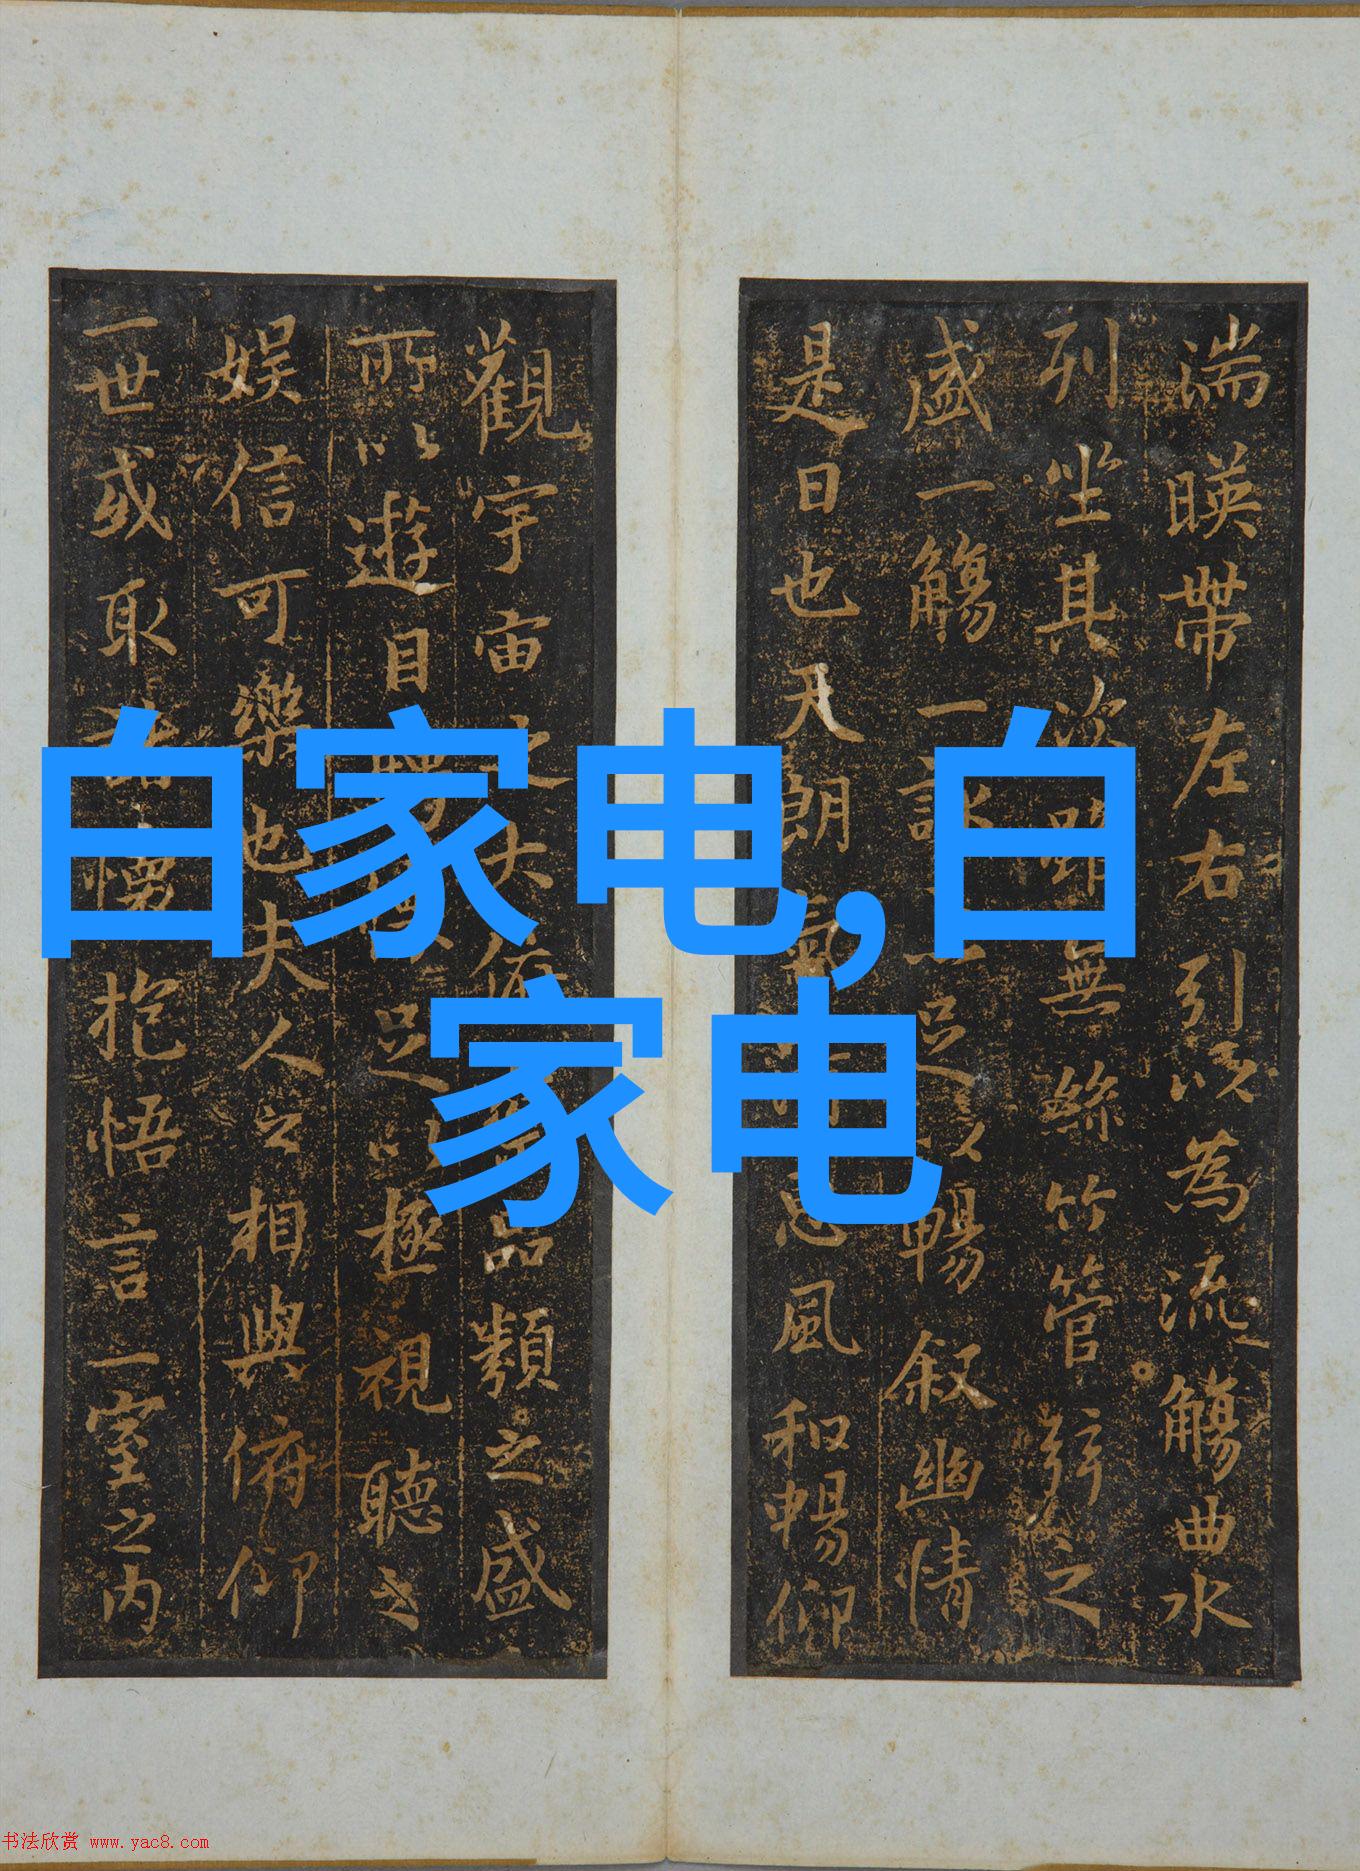 湍暎帶左右引以為流觴曲水
列坐其次雖無絲竹管弦之
盛一觴一詠足以暢叙幽情
是日也天朗氣風和暢仰
觀宇宙之大俯品類之盛
所以遊目足以極視聽之
娛信可樂也夫人之相與俯仰
一世或取懷抱悟言一室之內
白家电,白
家电
书法欣赏 www.yac8.com